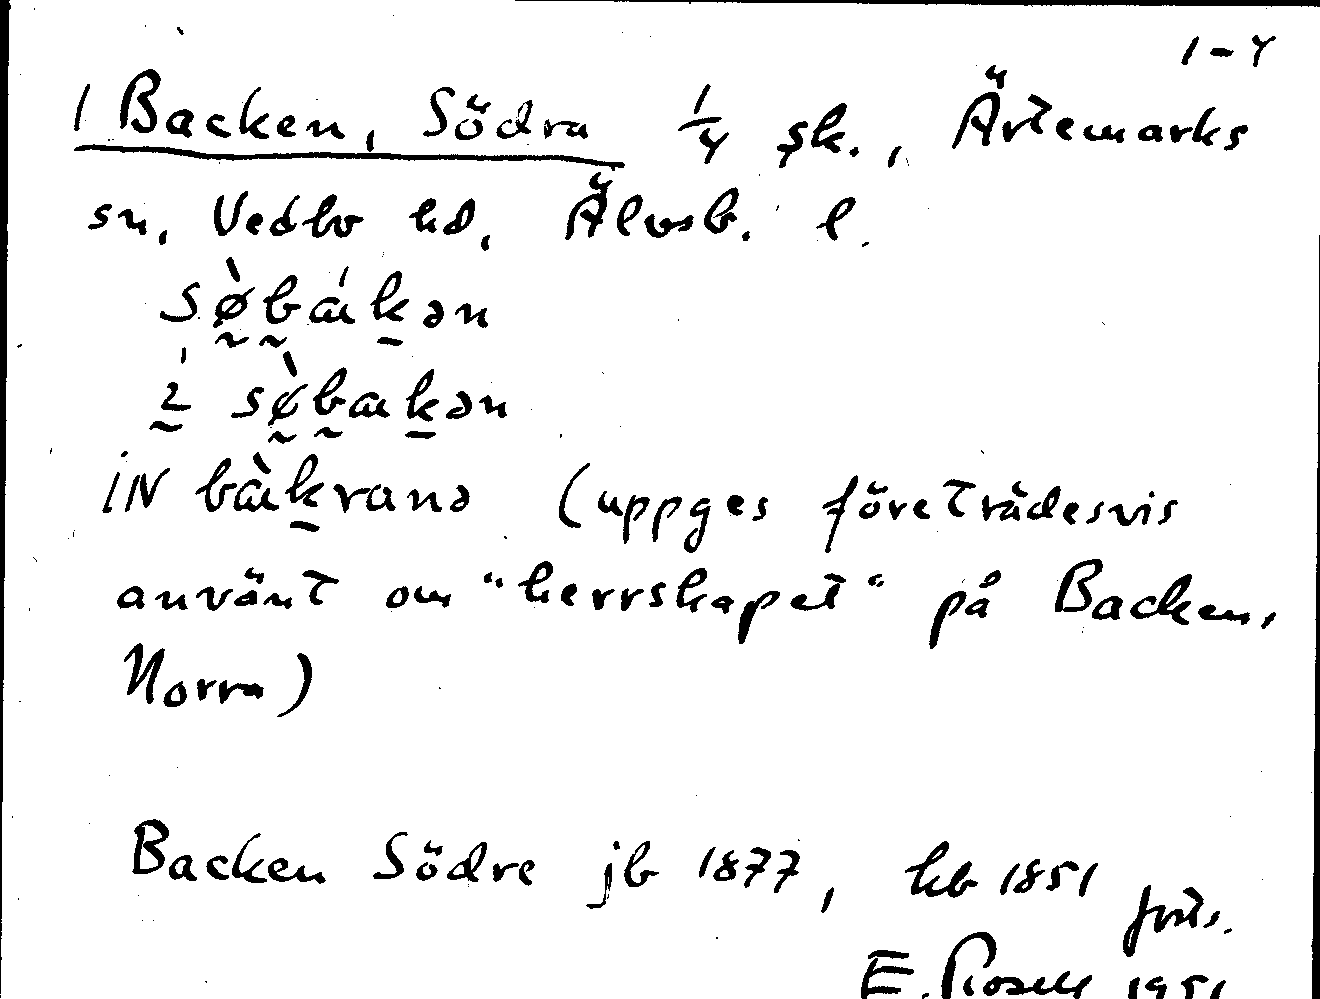 1-4
1 Backen, Södra 1/4 sk., Ärtemarks
sn, Vedbo hd, Älvsb. l.
sø̀bákən
i sø̀bakən
IN bàkranə (uppges företrädesvis
använt om "herrskapet" på Backen,
Norra)
Backen Södre jb 1877, hb 1851 forts.
E. Rosell 1951